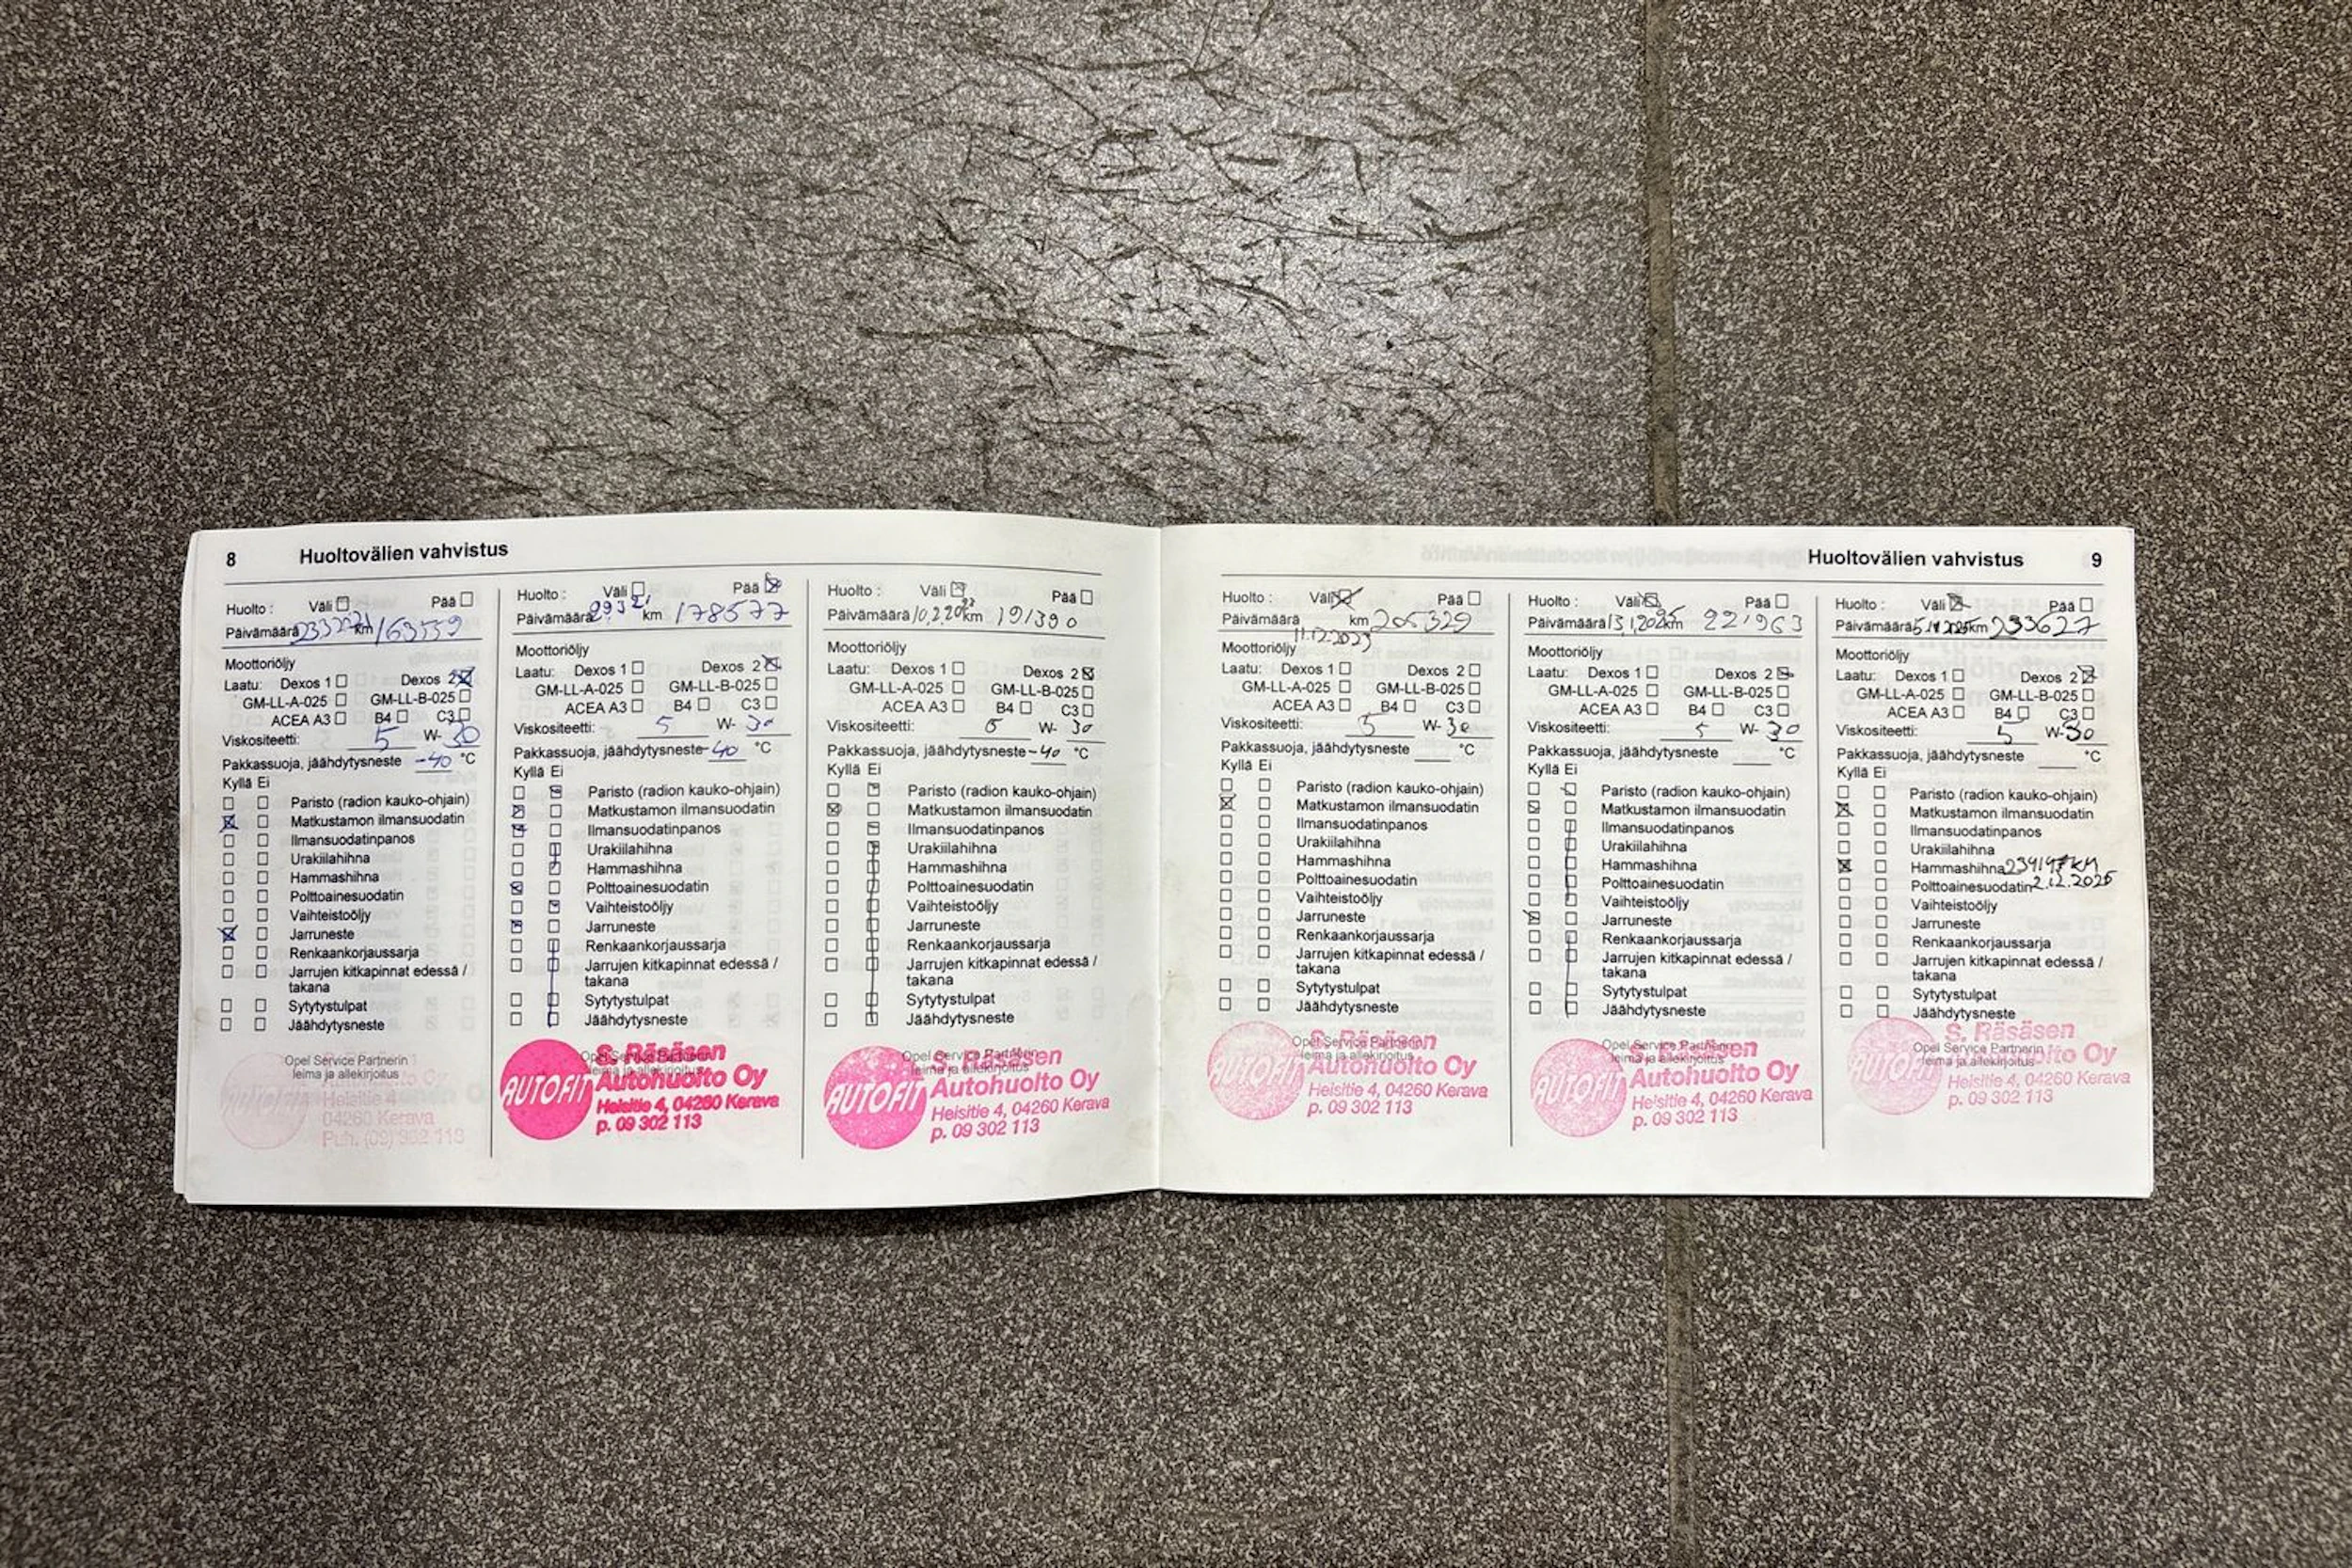 8 Huoltovälien vahvistus
Huolto : Väli Pää
Päivämäärä km 163559
Moottoriöljy
Laatu: Dexos 1 Dexos 2
GM-LL-A-025 GM-LL-B-025
ACEA A3 B4 C3
Viskositeetti: 5 W- 30
Pakkassuoja, jäähdytysneste -40 °C
Kyllä Ei
Paristo (radion kauko-ohjain)
Matkustamon ilmansuodatin
Ilmansuodatinpanos
Urakiilahihna
Hammashihna
Polttoainesuodatin
Vaihteistoöljy
Jarruneste
Renkaankorjaussarja
Jarrujen kitkapinnat edessä /
takana
Sytytystulpat
Jäähdytysneste
Opel Service Partnerin
leima ja allekirjoitus
AUTOFIT
Heisitie 4
04260 Kerava
Puh. (09) 302 113
Huolto : Väli Pää
Päivämäärä km 178577
Moottoriöljy
Laatu: Dexos 1 Dexos 2
GM-LL-A-025 GM-LL-B-025
ACEA A3 B4 C3
Viskositeetti: 5 W- 30
Pakkassuoja, jäähdytysneste -40 °C
Kyllä Ei
Paristo (radion kauko-ohjain)
Matkustamon ilmansuodatin
Ilmansuodatinpanos
Urakiilahihna
Hammashihna
Polttoainesuodatin
Vaihteistoöljy
Jarruneste
Renkaankorjaussarja
Jarrujen kitkapinnat edessä /
takana
Sytytystulpat
Jäähdytysneste
Opel Service Partnerin
leima ja allekirjoitus
AUTOFIT
S. Räsäsen
Autohuolto Oy
Heisitie 4, 04260 Kerava
p. 09 302 113
Huolto : Väli Pää
Päivämäärä 10.2.2023 km 191390
Moottoriöljy
Laatu: Dexos 1 Dexos 2
GM-LL-A-025 GM-LL-B-025
ACEA A3 B4 C3
Viskositeetti: 5 W- 30
Pakkassuoja, jäähdytysneste -40 °C
Kyllä Ei
Paristo (radion kauko-ohjain)
Matkustamon ilmansuodatin
Ilmansuodatinpanos
Urakiilahihna
Hammashihna
Polttoainesuodatin
Vaihteistoöljy
Jarruneste
Renkaankorjaussarja
Jarrujen kitkapinnat edessä /
takana
Sytytystulpat
Jäähdytysneste
Opel Service Partnerin
leima ja allekirjoitus
AUTOFIT
S. Räsäsen
Autohuolto Oy
Heisitie 4, 04260 Kerava
p. 09 302 113
Huoltovälien vahvistus 9
Huolto : Väli Pää
Päivämäärä km 205329
11.12.2023
Moottoriöljy
Laatu: Dexos 1 Dexos 2
GM-LL-A-025 GM-LL-B-025
ACEA A3 B4 C3
Viskositeetti: 5 W- 30
Pakkassuoja, jäähdytysneste °C
Kyllä Ei
Paristo (radion kauko-ohjain)
Matkustamon ilmansuodatin
Ilmansuodatinpanos
Urakiilahihna
Hammashihna
Polttoainesuodatin
Vaihteistoöljy
Jarruneste
Renkaankorjaussarja
Jarrujen kitkapinnat edessä /
takana
Sytytystulpat
Jäähdytysneste
Opel Service Partnerin
leima ja allekirjoitus
AUTOFIT
S. Räsäsen
Autohuolto Oy
Heisitie 4, 04260 Kerava
p. 09 302 113
Huolto : Väli Pää
Päivämäärä 13.1.2025 km 221963
Moottoriöljy
Laatu: Dexos 1 Dexos 2
GM-LL-A-025 GM-LL-B-025
ACEA A3 B4 C3
Viskositeetti: 5 W- 30
Pakkassuoja, jäähdytysneste °C
Kyllä Ei
Paristo (radion kauko-ohjain)
Matkustamon ilmansuodatin
Ilmansuodatinpanos
Urakiilahihna
Hammashihna
Polttoainesuodatin
Vaihteistoöljy
Jarruneste
Renkaankorjaussarja
Jarrujen kitkapinnat edessä /
takana
Sytytystulpat
Jäähdytysneste
Opel Service Partnerin
leima ja allekirjoitus
AUTOFIT
S. Räsäsen
Autohuolto Oy
Heisitie 4, 04260 Kerava
p. 09 302 113
Huolto : Väli Pää
Päivämäärä km 233627
Moottoriöljy
Laatu: Dexos 1 Dexos 2
GM-LL-A-025 GM-LL-B-025
ACEA A3 B4 C3
Viskositeetti: 5 W- 30
Pakkassuoja, jäähdytysneste °C
Kyllä Ei
Paristo (radion kauko-ohjain)
Matkustamon ilmansuodatin
Ilmansuodatinpanos
Urakiilahihna
Hammashihna
Polttoainesuodatin 2.12.2025
Vaihteistoöljy
Jarruneste
Renkaankorjaussarja
Jarrujen kitkapinnat edessä /
takana
Sytytystulpat
Jäähdytysneste
Opel Service Partnerin
leima ja allekirjoitus
AUTOFIT
S. Räsäsen
Autohuolto Oy
Heisitie 4, 04260 Kerava
p. 09 302 113